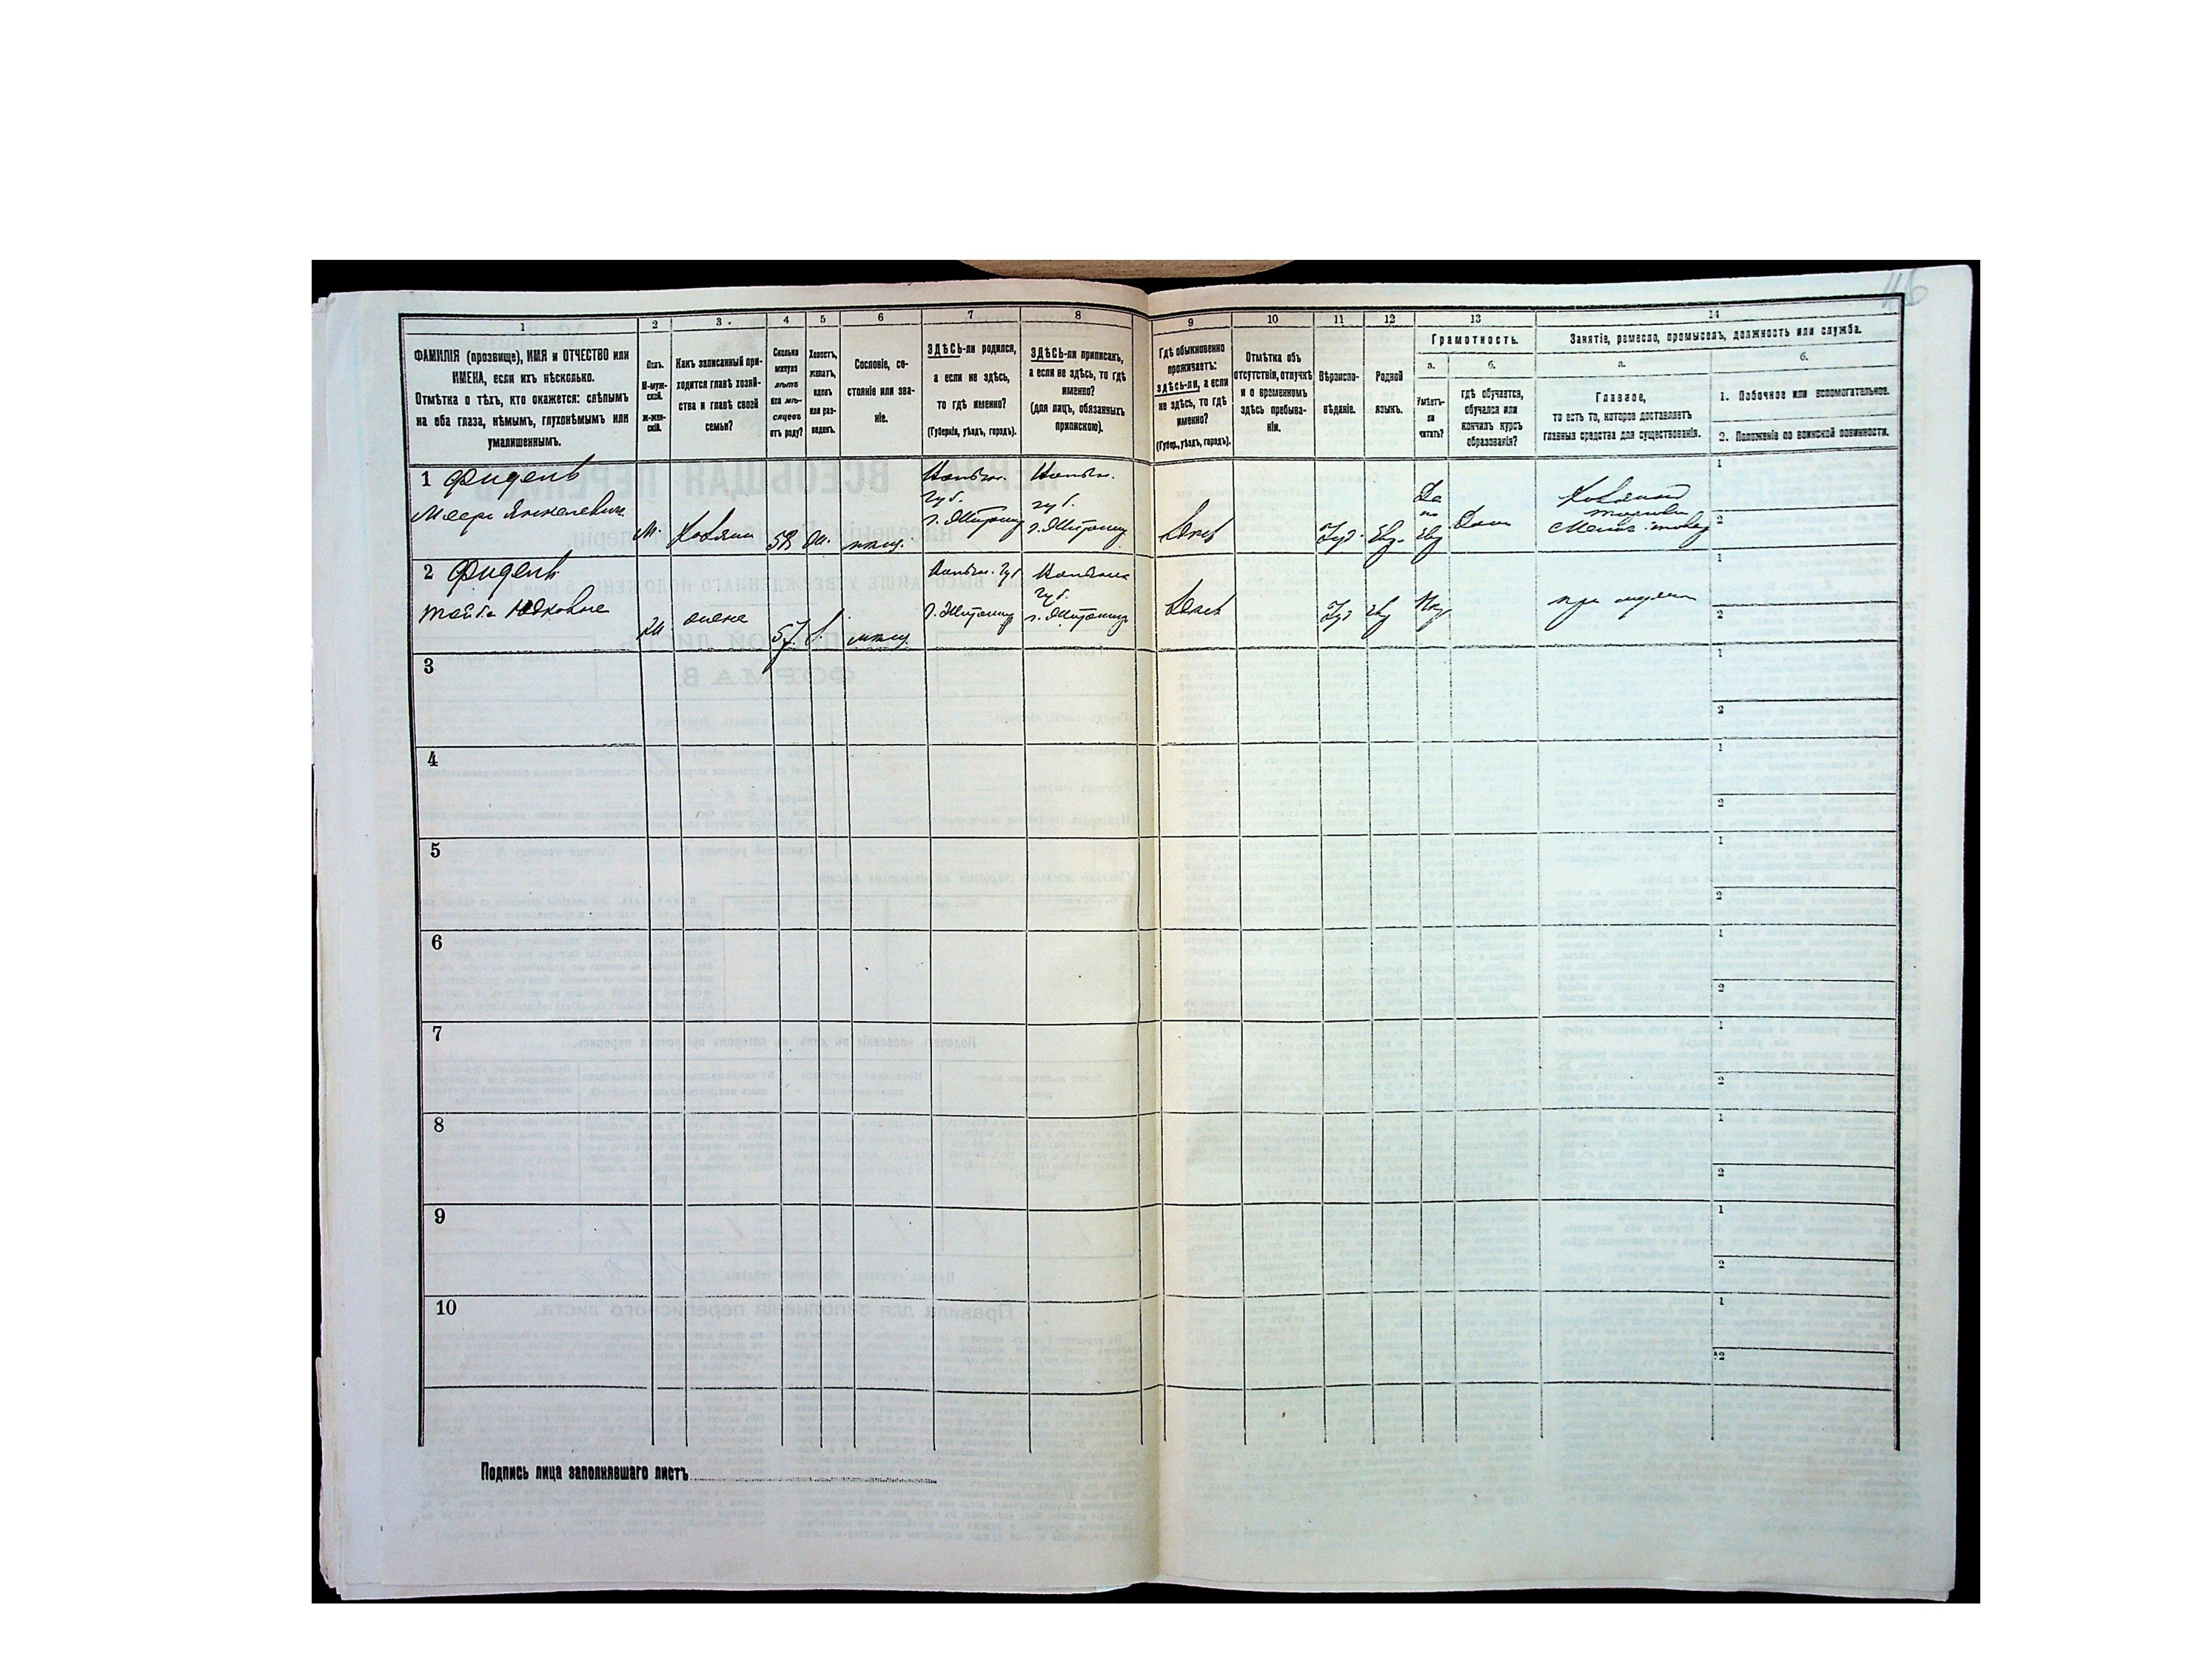 46
1
2
3.
4
5
6
7
8
9
10
11
12
13
14
ФАМИЛІЯ (прозвище), ИМЯ и ОТЧЕСТВО или
ИМЕНА, если ихъ нѣсколько.
Отмѣтка о тѣхъ, кто окажется: слѣпымъ
на оба глаза, нѣмымъ, глухонѣмымъ или
умалишеннымъ.
Полъ.
М-муж-
ской.
Ж-жен-
скій.
Какъ записанный при-
ходится главѣ хозяй-
ства и главѣ своей
семьи?
Сколько
минуло
лѣтъ
или мѣ-
сяцевъ
отъ роду?
Холостъ,
женатъ,
вдовъ
или раз-
веденъ.
Сословіе, со-
стояніе или зва-
ніе.
ЗДѢСЬ-ли родился,
а если не здѣсь,
то гдѣ именно?
(Губернія, уѣздъ, городъ).
ЗДѢСЬ-ли приписанъ,
а если не здѣсь, то гдѣ
именно?
(для лицъ, обязанныхъ
припискою).
Гдѣ обыкновенно
проживаетъ:
здѣсь-ли, а если
не здѣсь, то гдѣ
именно?
(Губер., уѣздъ, городъ).
Отмѣтка объ
отсутствіи, отлучкѣ
и о временномъ
здѣсь пребыва-
ніи.
Вѣроиспо-
вѣданіе.
Родной
языкъ.
Грамотность.
а.
Умѣетъ-
ли
читать?
б.
гдѣ обучается,
обучался или
кончилъ курсъ
образованія?
Занятіе, ремесло, промыселъ, должность или служба.
а.
Главное,
то есть то, которое доставляетъ
главныя средства для существованія.
б.
1. Побочное или вспомогательное.
2. Положеніе по воинской повинности.
1 Фидель
Мееръ Янкелевич
М.
Хозяин
58
Ж.
мѣщ.
Волын.
губ.
г. Житомир
Волын.
губ.
г. Житомир
Здѣсь
Іуд.
Евр.
Да
по
Евр
Дома
1
2
2 Фидель
Тойба Юдковна
Ж
жена
57
З.
мѣщ.
Волын. губ
г. Житомир
Волынск
губ.
г. Житомир
Здѣсь
Іуд
Евр
Нѣт
при мужѣ
1
2
3
1
2
4
1
2
5
1
2
6
1
2
7
1
2
8
1
2
9
1
2
10
1
2
Подпись лица заполнявшаго листъ